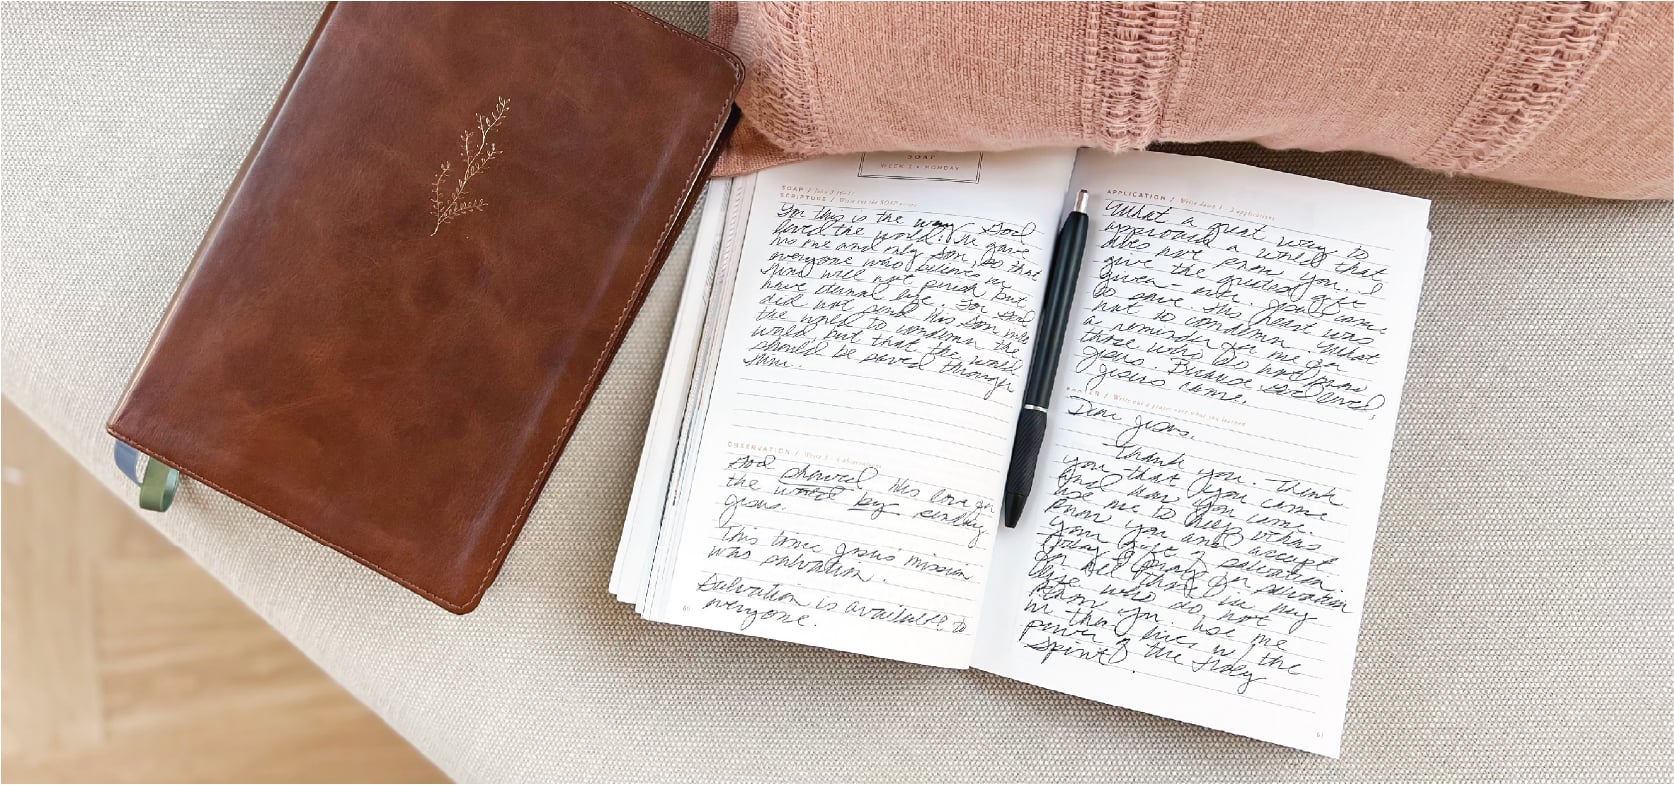 SOAP
WEEK 2 • MONDAY
SOAP / John 3:16-17
SCRIPTURE / Write out the SOAP verses
For this is the way God
loved the world: He gave
his one and only Son, so that
everyone who believes in
Him will not perish but
have eternal life. For God
did not send his Son into
the world to condemn the
world, but that the world
should be saved through
him.
OBSERVATION / Write 3 - 4 observations
God showed his love for
the world by sending
Jesus.
This time Jesus' mission
was salvation.
Salvation is available to
everyone.
60
APPLICATION / Write down 1 - 2 applications
What a great way to
approach a world that
does not know you. I
gave the greatest gift
given - ever. Jesus came
to save. His heart was
not to condemn. What
a reminder for me for
those who do not know
Jesus. Because God loved,
Jesus came.
PRAYER / Write out a prayer over what you learned
Dear Jesus,
Thank you. Thank
you that you came
and how you came.
Use me to help others
know you and accept
your gift of salvation.
Today I pray for salvation
for all those in my
life who do not
know you. Use me
in their lives in the
power of the Holy
Spirit.
61